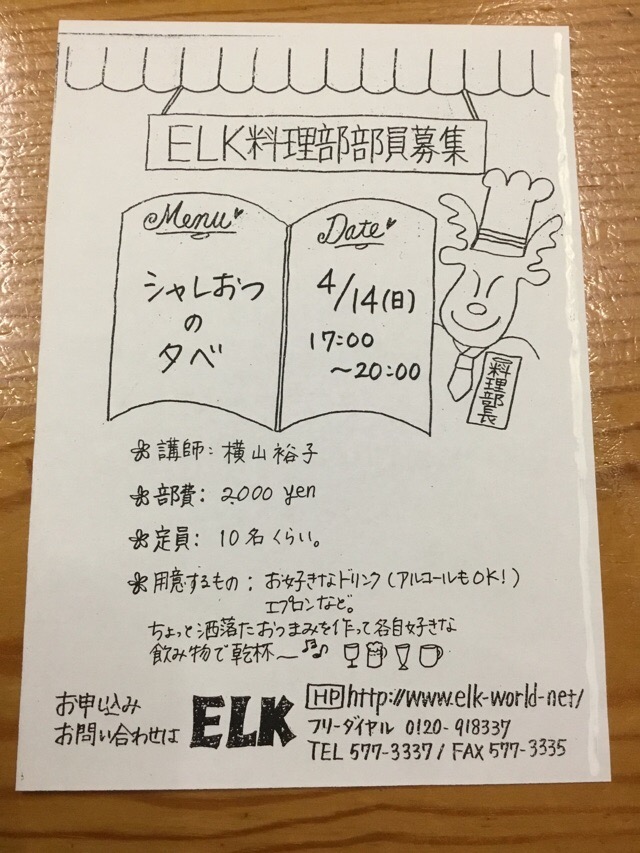 ELK料理部部員募集
Menu
シャレおつ
の
夕べ
Date
4/14(日)
17:00
～20:00
料理部長
講師: 横山裕子
部費: 2,000 yen
定員: 10名くらい。
用意するもの: お好きなドリンク(アルコールもOK!)
エプロンなど。
ちょっと洒落たおつまみを作って各自好きな
飲み物で乾杯～
お申し込み
お問い合わせは
ELK
HP http://www.elk-world-net/
フリーダイヤル 0120-918337
TEL 577-3337 / FAX 577-3335